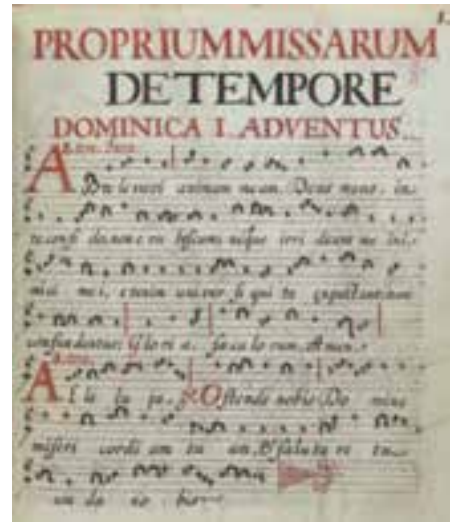 1.
PROPRIUM MISSARUM
DE TEMPORE
DOMINICA I. ADVENTUS
AD te levavi animam meam: Deus meus, in
te confi do, non e ru bescam: neque irri deant me ini,
mici mei, etenim univer si qui te expectant, non
confundentur: Glo ri a. saecu lo rum. Amen.
Al le lu ja. Ostende nobis Do mine
miseri cordi am tu am, & saluta re tu
um da no bis